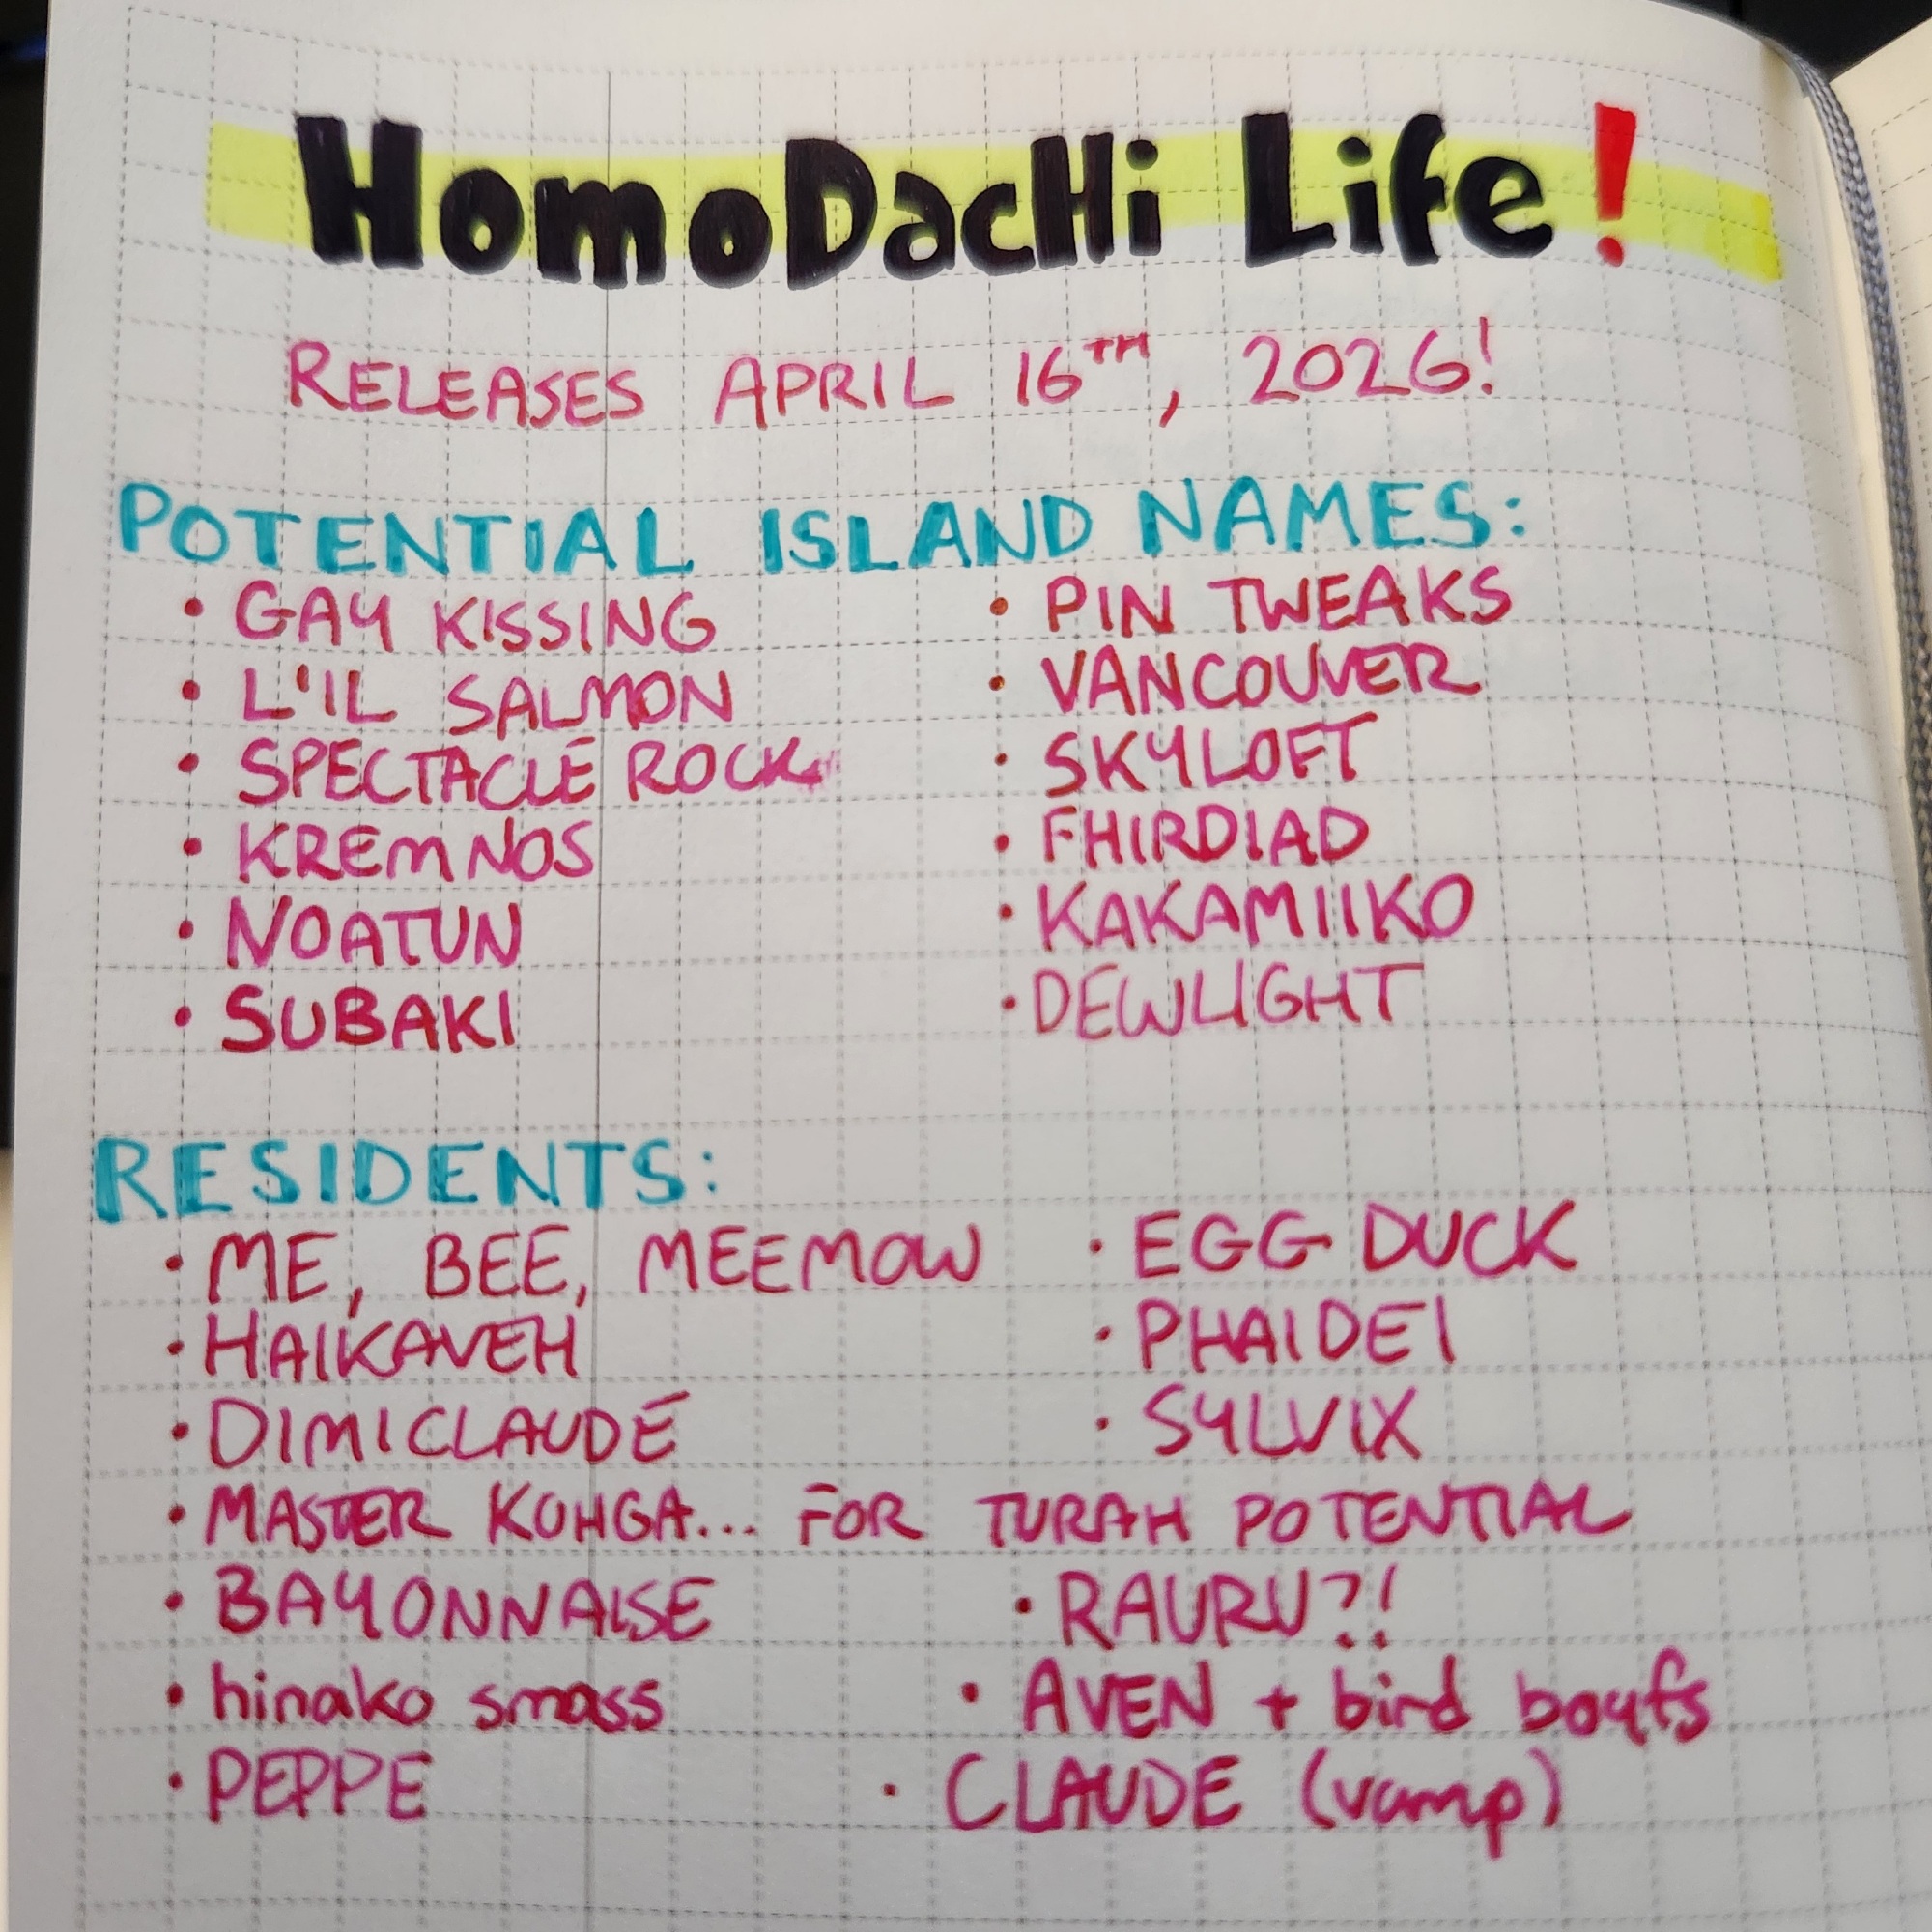 HomoDacHi Life!
RELEASES APRIL 16TH, 2026!
POTENTIAL ISLAND NAMES:
• GAY KISSING
• L'IL SALMON
• SPECTACLE ROCK
• KREMNOS
• NOATUN
• SUBAKI
• PIN TWEAKS
• VANCOUVER
• SKYLOFT
• FHIRDIAD
• KAKAMIIKO
• DEWLIGHT
RESIDENTS:
• ME, BEE, MEEMOW
• HAIKAVEH
• DIMICLAUDE
• EGG DUCK
• PHAIDEI
• SYLVIX
• MASTER KOHGA... FOR TURAH POTENTIAL
• BAYONNAISE
• hinako smass
• PEPPE
• RAURU?!
• AVEN + bird boyfs
• CLAUDE (vamp)